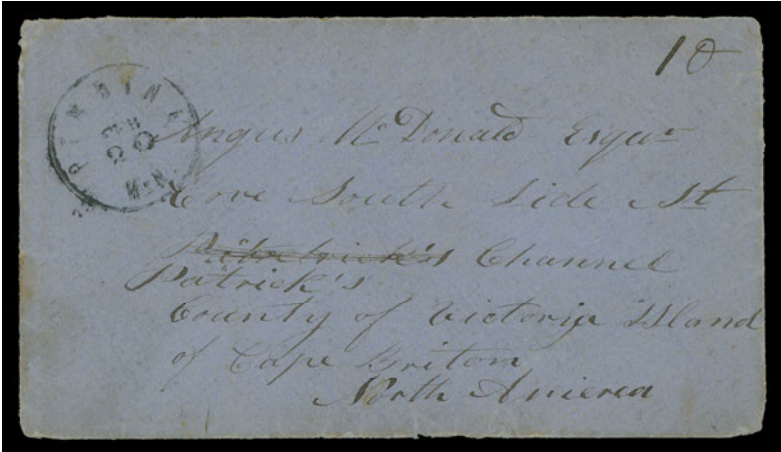 10
PEMBINA
Angus McDonald Esqur
Cove South Side St
Patrick's Channel
County of Victoria Island
of Cape Briton
North America